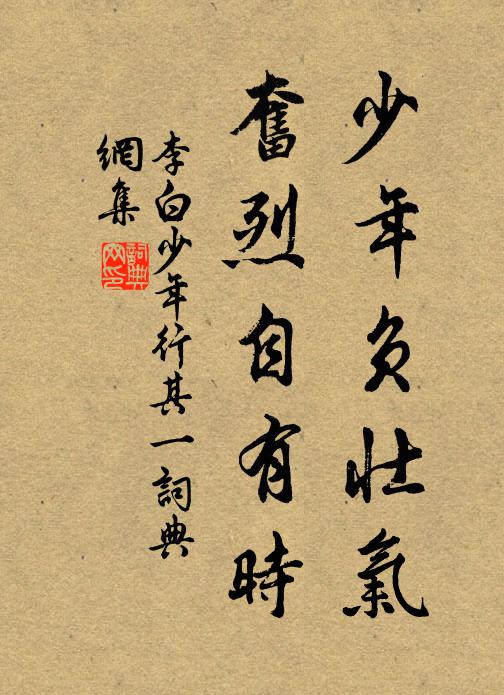 少年負壯氣
奮烈自有時
李白少年行其一詞典
網集
詞典
网印